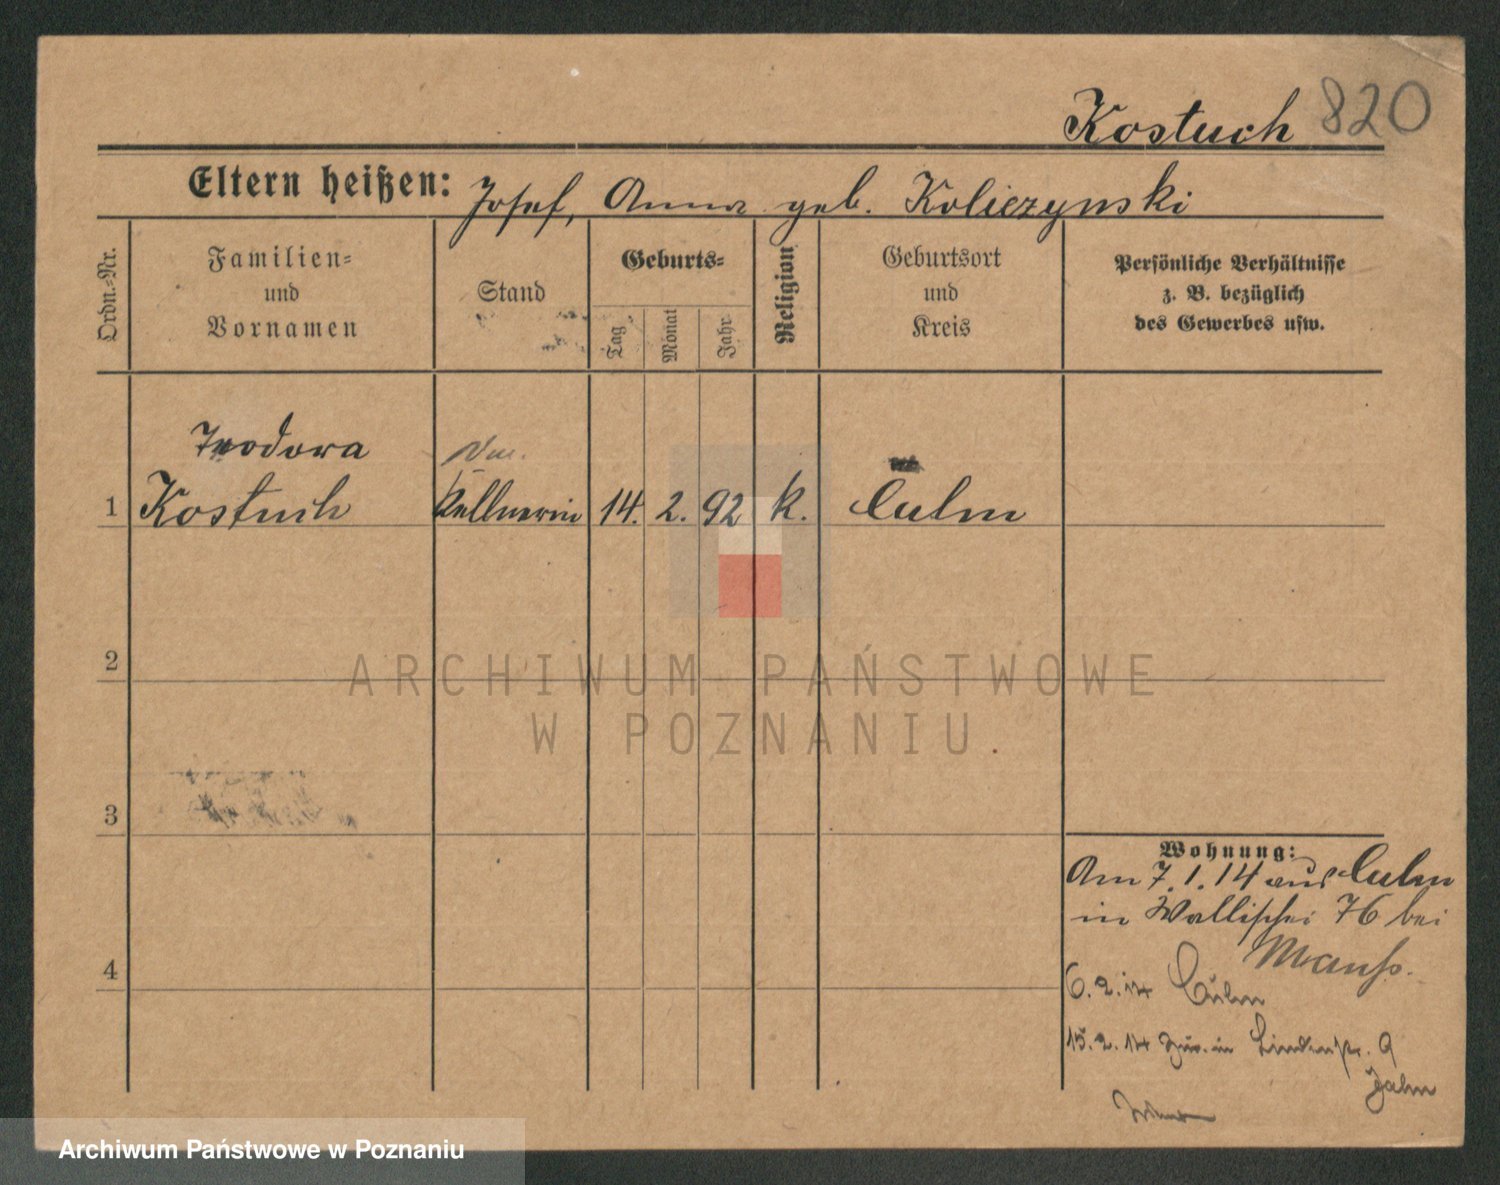 Kostuch 820
Eltern heißen: Josef, Anna geb. Koliczynski
Ordn.-Nr.
Familien-
und
Vornamen
Stand
Geburts-
Tag
Monat
Jahr
Religion
Geburtsort
und
Kreis
Persönliche Verhältnisse
z. B. bezüglich
des Gewerbes usw.
Teodora
1 Kostuch Kellnerin 14. 2. 92 k. Culm
2
ARCHIWUM PAŃSTWOWE
W POZNANIU
3
Wohnung:
Am 7.1.14 aus Culm
in Wallischei 76 bei
4
6.2.14 Culm
15.2.14 zur. in Lindenstr. 9
Jahn
Archiwum Państwowe w Poznaniu